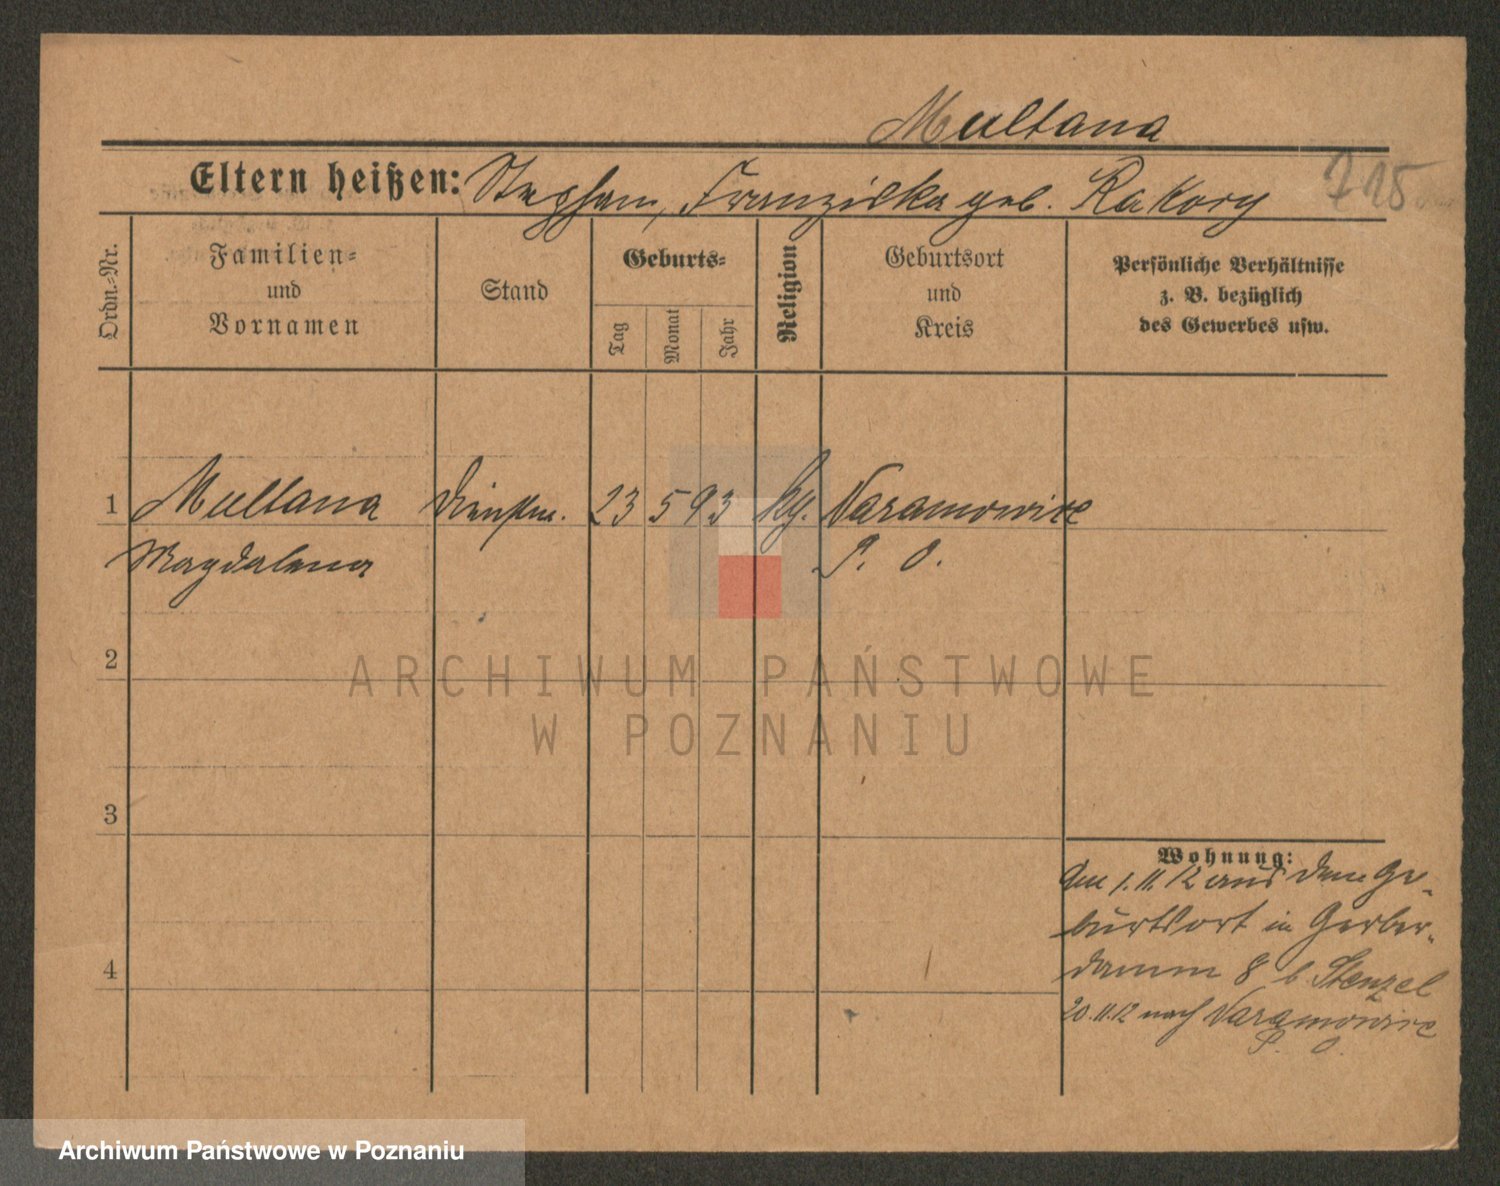 Multana
Eltern heißen: Stephan, Franziska geb. Rakory
715
Ordn.-Nr.
Familien-
und
Vornamen
Stand
Geburts-
Tag
Monat
Jahr
Religion
Geburtsort
und
Kreis
Persönliche Verhältnisse
z. B. bezüglich
des Gewerbes usw.
1 Multana Dienstm. 23 5 93 kg. Naramowice
Magdalena P. O.
2
ARCHIWUM PAŃSTWOWE
W POZNANIU
3
Wohnung:
Am 1.11.12 aus dem Ge-
burtsort in Gerber-
damm 8 b. Stenzel
20.11.12 nach Naramowice
P. O.
4
Archiwum Państwowe w Poznaniu